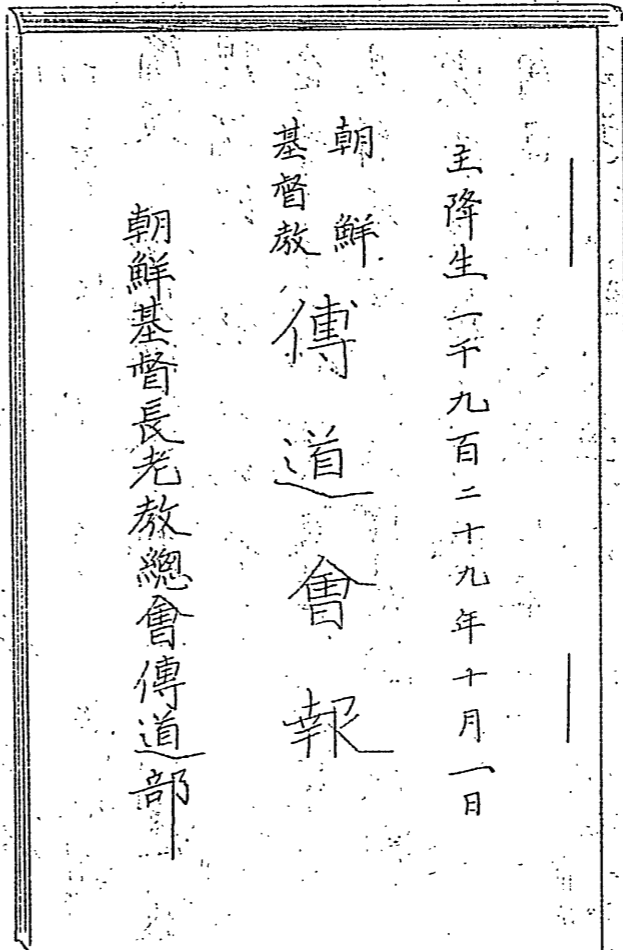 主降生一千九百二十九年十月一日
朝鮮
基督教
傳道會報
朝鮮基督長老教總會傳道部